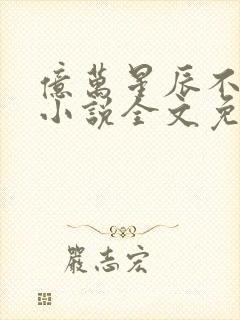 億萬星辰不
小說全文免
嚴志宏